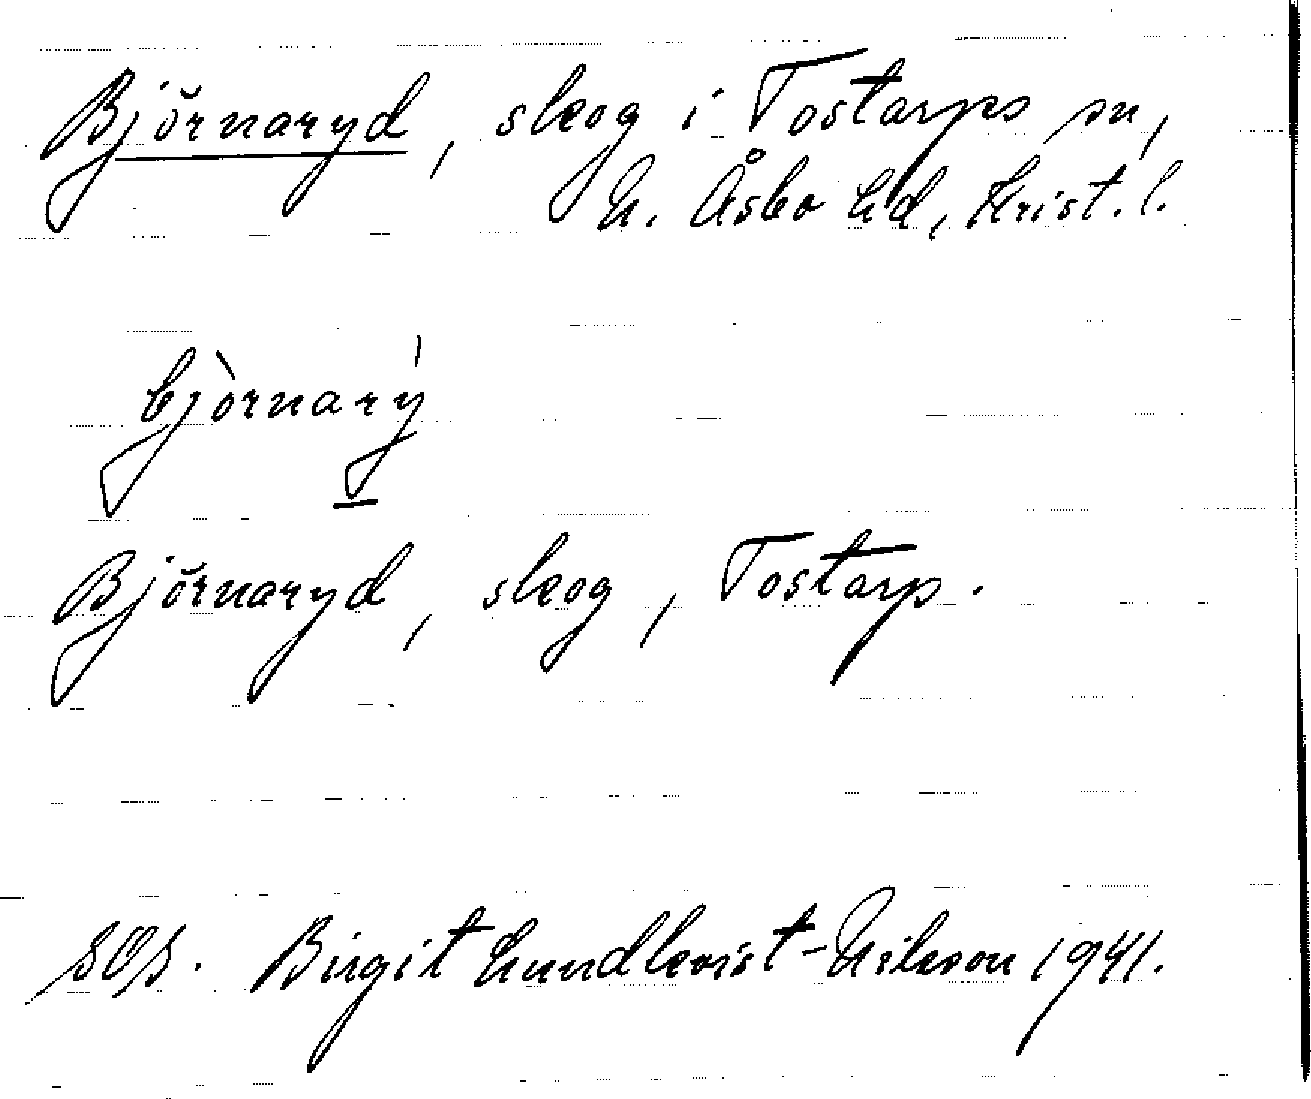 Björnaryd, skog i Tostarps sn,
N. Åsbo hd, Krist. l.
bjòrnarý
Björnaryd, skog, Tostarp.
SOS. Birgit Lundkvist-Nilsson 1941.